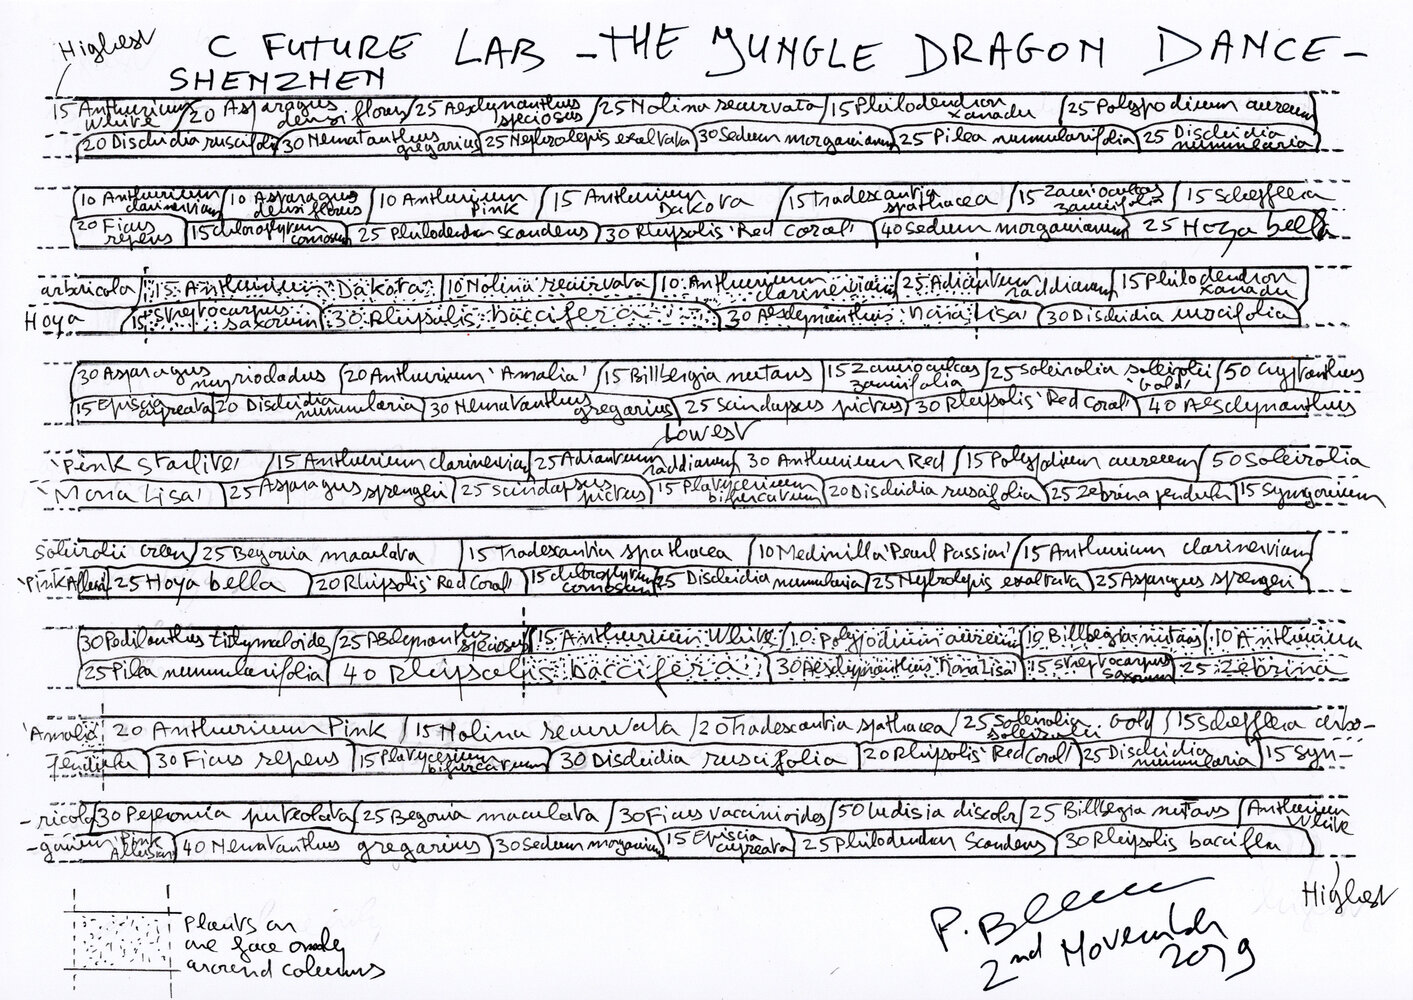 Highest
C FUTURE LAB - THE JUNGLE DRAGON DANCE -
SHENZHEN
15 Anthurium White 20 Asparagus densiflorus 25 Aeschynanthus speciosus 25 Nolina recurvata 15 Philodendron xanadu 25 Polypodium aureum
20 Dischidia ruscifolia 30 Nematanthus gregarius 25 Nephrolepis exaltata 30 Sedum morganianum 25 Pilea nummularifolia 25 Dischidia nummularia
10 Anthurium clarinervium 10 Asparagus densiflorus 10 Anthurium Pink 15 Anthurium Dakota 15 Tradescantia spathacea 15 Zamioculcas zamiifolia 15 Schefflera
20 Ficus repens 15 chlorophytum comosum 25 Philodendron scandens 30 Rhipsalis 'Red Coral' 40 Sedum morganianum 25 Hoya bella
arboricola 15 Anthurium Dakota 10 Nolina recurvata 10 Anthurium clarinervium 25 Adiantum raddianum 15 Philodendron xanadu
Hoya 15 Streptocarpus saxorum 30 Rhipsalis baccifera 30 Aeschynanthus 'Mona Lisa' 30 Dischidia ruscifolia
30 Asparagus myriocladus 20 Anthurium 'Amalia' 15 Billbergia nutans 15 Zamioculcas zamiifolia 25 Soleirolia soleirolii 'Gold' 50 Cryptanthus
15 Episcia cupreata 20 Dischidia nummularia 30 Nematanthus gregarius 25 Scindapsus pictus 30 Rhipsalis 'Red Coral' 40 Aeschynanthus
Lowest
'Pink Starlite' 15 Anthurium clarinervium 25 Adiantum raddianum 30 Anthurium Red 15 Polypodium aureum 50 Soleirolia
'Mona Lisa' 25 Asparagus sprengeri 25 Scindapsus pictus 15 Platycerium bifurcatum 20 Dischidia ruscifolia 25 Zebrina pendula 15 Syngonium
Soleirolii Green 25 Begonia maculata 15 Tradescantia spathacea 10 Medinilla 'Pearl Passion' 15 Anthurium clarinervium
'Pink Allusion' 25 Hoya bella 20 Rhipsalis 'Red Coral' 15 chlorophytum comosum 25 Dischidia nummularia 25 Nephrolepis exaltata 25 Asparagus sprengeri
30 Pedilanthus tithymaloides 25 Aeschynanthus speciosus 15 Anthurium White 10 Polypodium aureum 10 Billbergia nutans 10 Anthurium
25 Pilea nummularifolia 40 Rhipsalis baccifera 30 Aeschynanthus 'Mona Lisa' 15 Streptocarpus saxorum 25 Zebrina
'Amalia' 20 Anthurium Pink 15 Nolina recurvata 20 Tradescantia spathacea 25 Soleirolia soleirolii Gold 15 Schefflera arbo-
pendula 30 Ficus repens 15 Platycerium bifurcatum 30 Dischidia ruscifolia 20 Rhipsalis 'Red Coral' 25 Dischidia nummularia 15 Syn-
-ricola 30 Peperomia puteolata 25 Begonia maculata 30 Ficus vaccinioides 50 Ludisia discolor 25 Billbergia nutans Anthurium White
-gonium 'Pink Allusion' 40 Nematanthus gregarius 30 Sedum morganianum 15 Episcia cupreata 25 Philodendron Scandens 30 Rhipsalis baccifera
Highest
Plants on
one face only
around columns
P. Blanc
2nd November
2019